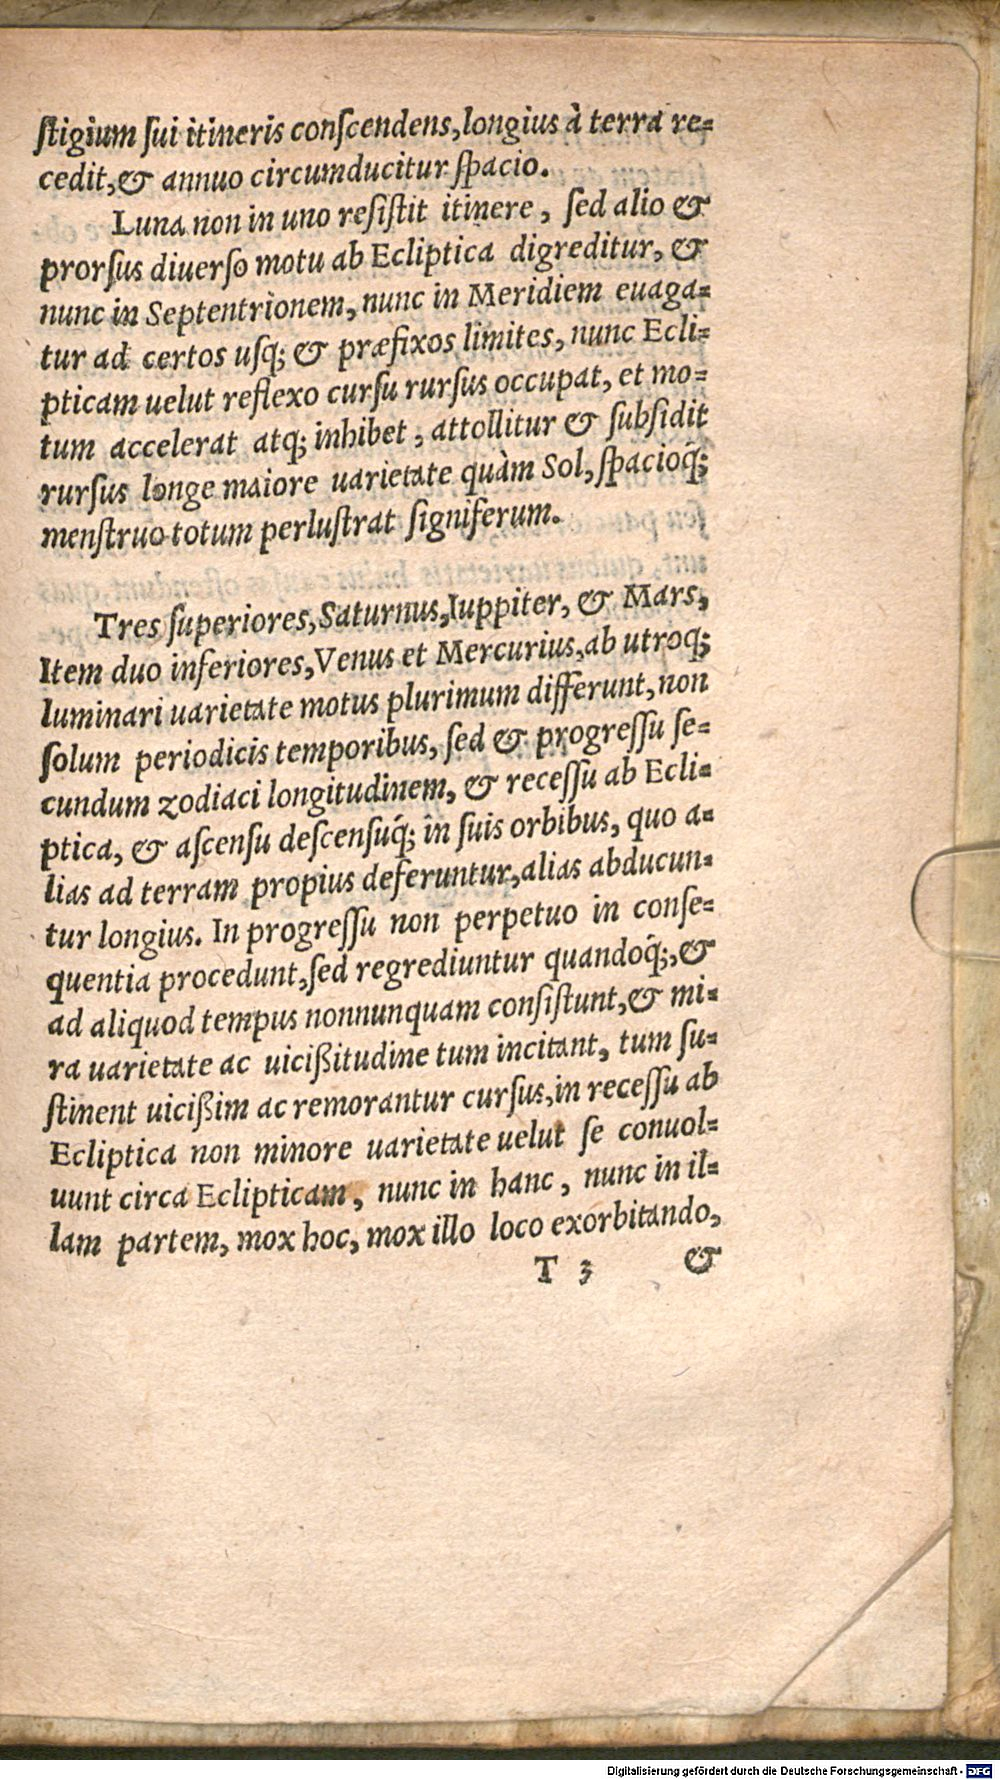 ſtigium ſui itineris conſcendens, longius à terra re=
cedit, & annuo circumducitur ſpacio.
Luna non in uno reſiſtit itinere, ſed alio &
prorſus diuerſo motu ab Ecliptica digreditur, &
nunc in Septentrionem, nunc in Meridiem euaga=
tur ad certos uſq; & præfixos limites, nunc Ecli=
pticam uelut reflexo curſu rurſus occupat, et mo=
tum accelerat atq; inhibet, attollitur & ſubſidit
rurſus longe maiore uarietate quàm Sol, ſpacioq́;
menſtruo totum perluſtrat ſigniferum.
Tres ſuperiores, Saturnus, Iuppiter, & Mars,
Item duo inferiores, Venus et Mercurius, ab utroq;
luminari uarietate motus plurimum differunt, non
ſolum periodicis temporibus, ſed & progreſſu ſe=
cundum zodiaci longitudinem, & receſſu ab Ecli=
ptica, & aſcenſu deſcenſuq́; in ſuis orbibus, quo a=
lias ad terram propius deferuntur, alias abducun=
tur longius. In progreſſu non perpetuo in conſe=
quentia procedunt, ſed regrediuntur quandoq́;, &
ad aliquod tempus nonnunquam conſiſtunt, & mi=
ra uarietate ac uicißitudine tum incitant, tum ſu=
ſtinent uicißim ac remorantur curſus, in receſſu ab
Ecliptica non minore uarietate uelut ſe conuol=
uunt circa Eclipticam, nunc in hanc, nunc in il=
lam partem, mox hoc, mox illo loco exorbitando,
T 3 &
Digitalisierung gefördert durch die Deutsche Forschungsgemeinschaft - DFG